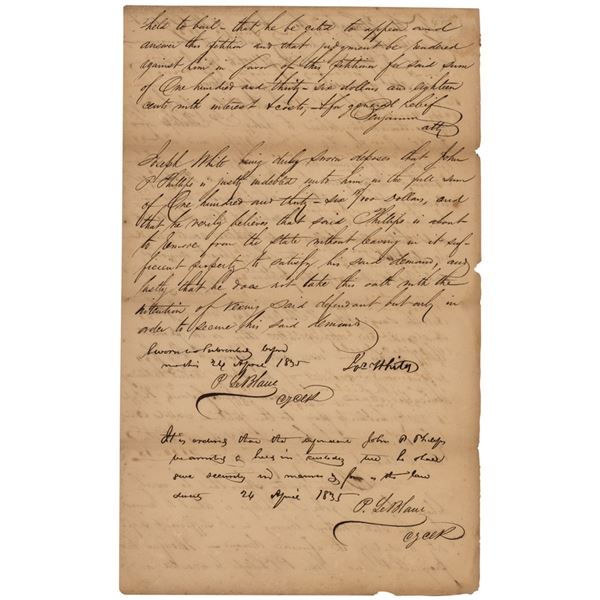 held to bail – that he be cited to appear and
answer this petition and that judgment be rendered
against him in favor of this petitioner for said sum
of One hundred and thirty-six dollars and eighteen
cents with interest & costs, – & for general relief
Benjamin
atty
Joseph White being duly sworn deposes that John
P Phillips is justly indebted unto him in the full sum
of One hundred and thirty-six 18/100 Dollars, and
that he verily believes, that said Phillips is about
to remove from the state without leaving in it suf-
ficient property to satisfy his said demand, and
lastly that he does not take this oath with the
intention of vexing said defendant but only in
order to secure his said demand
Sworn & subscribed before
me this 24 April 1835
Jos White
P. LeBlanc
It is ordered that the defendant John P Phillips
be arrested & held in custody until he shall
give security in manner & form as the law
directs 24 April 1835
P. LeBlanc